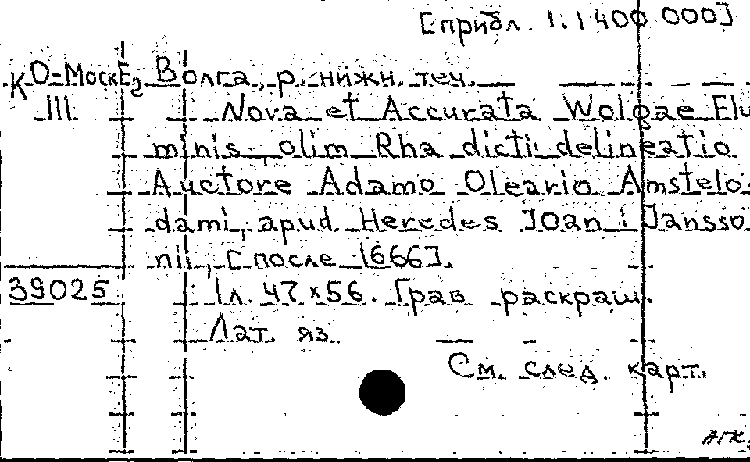 [прибл. 1:1400 000]
КО-МоскЕ₂ Волга, р. нижн. теч.
III Nova et Accurata Wolgae Flu
minis, olim Rha dicti delineatio
Auctore Adamo Oleario Amstelo
dami, apud Heredes Joan i Jansso
nii, [после 1666].
39025 1 л. 47x56. Грав раскраш.
Лат. яз.
См. след. карт.